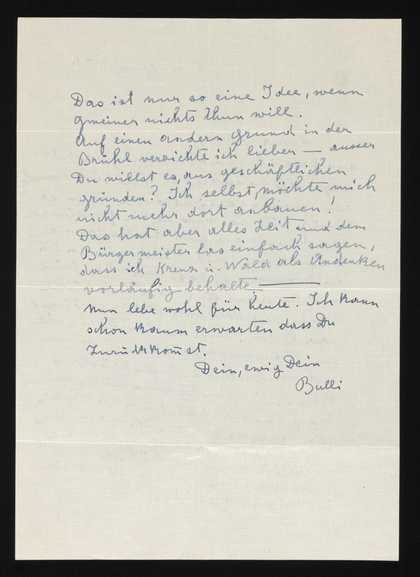 Das ist nur so eine Idee, wenn
gmeiner nichts thun will.
Auf einen andern Grund in der
Brühl verzichte ich lieber — ausser
Du willst es, aus geschäftlichen
gründen? Ich selbst, möchte mich
nicht mehr dort anbauen!
Das hat aber alles Zeit und dem
Bürgermeister las einfach sagen,
dass ich Kreuz u. Wald als Andenken
vorläufig behalte. —
Nun lebe wohl für heute. Ich kann
schon kaum erwarten dass Du
Zurückkomst.
Dein, ewig Dein
Bulli